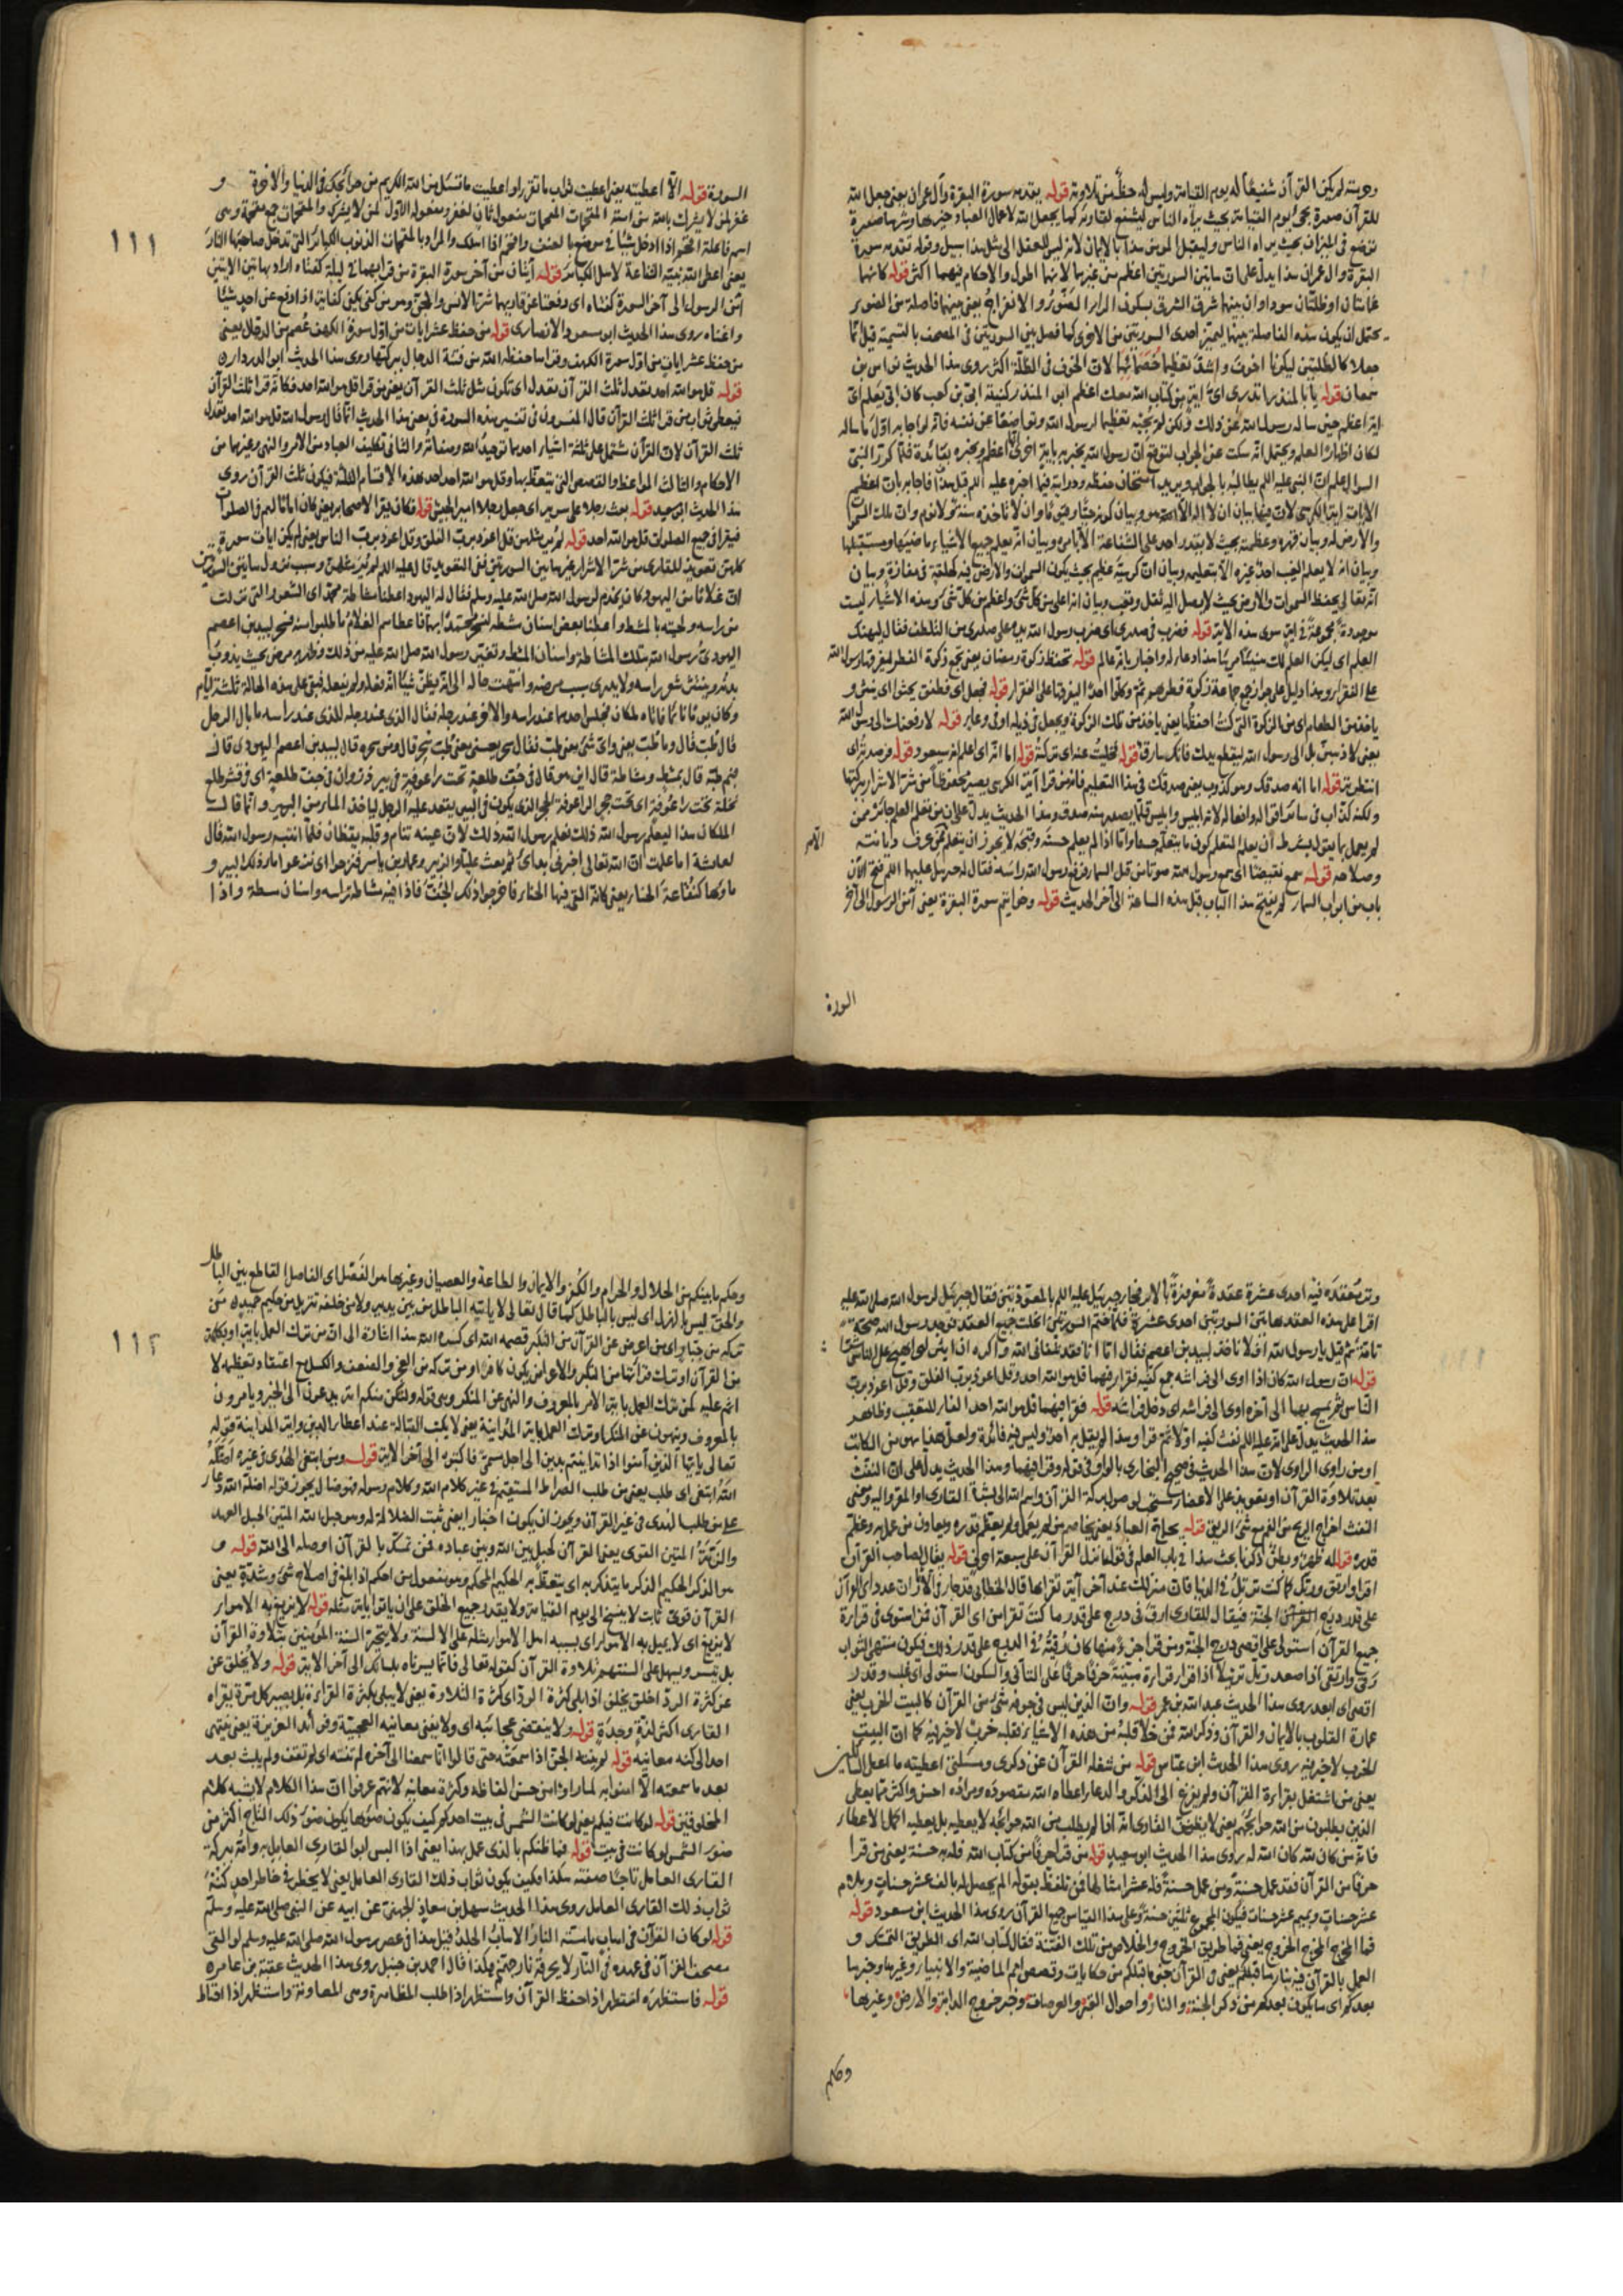 وحينئذ لم يكن القرآن شفيعاً له يوم القيامة وليس له حظ من تلاوته قوله يقدمه سورة البقرة وآل عمران يعني جعل الله
للقرآن صورة يجيء يوم القيامة بحيث يراه الناس ليشفع لقارئه كما يجعل الله لاعمال العباد خيرها وشرها صورة
توضع في الميزان بحيث يراه الناس وليقبل المؤمن هذا بالايمان لانه ليس للعقل الى مثل هذا سبيل وقوله تقدمه سورة
البقرة وال عمران هذا يدل على ان هاتين السورتين اعظم من غيرهما لانهما اطول والاحكام فيهما اكثر قوله كانهما
غمامتان او ظلتان سوداوان بينهما شرق الشرق بسكون الراء الضوء والانفراج يعني بينهما فاصلة من الضوء
يحتمل ان يكون هذه الفاصلة بينهما ليميز احدى السورتين من الاخرى كما فصل بين السورتين في المصحف بالتسمية قيل انما
جعلا كالظلتين ليكونا اخوف واشد تعظيما لان الخوف في الظلة اكثر روى هذا الحديث نواس بن
سمعان قوله يا با المنذر اتدري اي اية من كتاب الله معك اعظم ابو المنذر كنية ابي بن كعب كان ابي يعلم اي
اية اعظم حين ساله رسول الله عن ذلك ولكن لم يجبه تعظيما لرسول الله وتواضعا عن نفسه فانه لو اجابه اول ما ساله
لكان اظهارا لعلمه ويحتمل انه سكت عن الجواب لتوقع ان رسول الله يخبره باية اخرى اعظم ويخبره بفائدة فلما كرر النبي
السؤال علم ان النبي عليه السلم يطالبه بالجواب ويريد امتحان حفظه ودرايته فيما اخبره عليه السلم قبل هذا فاجابه بان اعظم
الايات اية الكرسي لان فيها بيان ان لا اله الا الله هو وبيان كونه حيا وقيوما وان لا تاخذه سنة ولا نوم وان ملك السموات
والارض له وبيان قهره وعظمته بحيث لا يقدر احد على الشفاعة الا باذنه وبيان انه يعلم جميع الاشياء ماضيها ومستقبلها
وبيان انه لا يعلم الغيب احد غيره الا بتعليمه وبيان ان كرسيه عظيم بحيث يكون السموات والارض فيه كحلقة في مفازة وبيان
انه تعالى يحفظ السموات والارض بحيث لا يصل اليه ثقل وتعب وبيان انه اعلى من كل شيء واعظم من كل شيء وهذه الاشياء ليست
موجودة مجموعة في اية سوى هذه الاية قوله فضرب في صدري اي ضرب رسول الله يده على صدري من التلطف فقال ليهنك
العلم اي ليكن العلم لك هنيئا مريئا هذا دعاء له واخبار بانه عالم قوله تحفظ زكوة رمضان يعني بجمع زكوة الفطر ليفرقها رسول الله
على الفقراء وهذا دليل على جواز جمع جماعة زكوة فطرهم ثم وكلوا احدا ليفرقها على الفقراء قوله فجعل اي فطفق يحثو اي ينثر و
ياخذ من الطعام اي من الزكوة التي كنت احفظها يعني ياخذ من تلك الزكوة ويجعل في ذيله او في وعائه قوله لارفعنك الى رسول الله
يعني لاذهبن بك الى رسول الله ليقطع يدك فانك سارق قوله فخليت عنه اي تركته قوله اما انه اي اعلم انه سيعود قوله فرصدته اي
انتظرته قوله اما انه صدقك وهو كذوب يعني صدقك في هذا التعليم فانه من قرا آية الكرسي يصير محفوظا من شر الاشرار ببركتها
ولكنه كذاب في سائر اقواله وافعاله لانه ابليس وابليس قلما يصدر منه صدق وهذا الحديث يدل على ان من تعلم العلم جائز ممن
لم يعمل بما يقول بشرط ان يعلم المتعلم كون ما يتعلم حسنا واما اذا لم يعلم حسنه وقبحه لا يجوز ان يتعلم ممن عرف ديانته
وصلاحه قوله سمع نقيضا اي سمع رسول الله صوتا من قبل السماء فرفع رسول الله راسه فقال له جبرئيل عليهما السلم فتح الان
باب من ابواب السماء لم يفتح هذا الباب قبل هذه الساعة الى آخر الحديث قوله وخواتيم سورة البقرة يعني آمن الرسول الى آخر
السورة
السورة قوله الا اعطيته يعني اعطيت ثواب ما تقرا او اعطيت ما تسئل من الله الكريم من حوائجك في الدنيا والاخرة و
غفر لمن لا يشرك بالله من امته المقحمات المقحمات مفعول ثان لغفر ومفعوله الاول لمن لا يشرك والمقحمات جمع مقحمة وهي
اسم فاعلة اقحم اذا ادخل شيئا في موضع بالعنف والمراد بالمقحمات الذنوب الكبائر التي تدخل صاحبها النار
يعني اعطى الله نبيه الشفاعة لاهل الكبائر قوله آيتان من آخر سورة البقرة من قرا بهما في ليلة كفتاه اراد بهاتين الايتين
آمن الرسول الى آخر السورة كفتاه اي دفعتا عن قاريهما شر الانس والجن وهو من كفى يكفي كفاية اذا دفع عن احد شيئا
واغناه روى هذا الحديث ابو مسعود الانصاري قوله من حفظ عشر ايات من اول سورة الكهف عصم من الدجال يعني
من حفظ عشر ايات من اول سورة الكهف وقراها حفظه الله من فتنة الدجال ببركتها روى هذا الحديث ابو الدرداء
قوله قل هو الله احد تعدل ثلث القرآن تعدل اي تكون مثل ثلث القرآن يعني من قرا قل هو الله احد فكانه قرا ثلث القرآن
فيعطى ثواب من قرا ثلث القرآن قال المفسرون في تفسير هذه السورة في معنى هذا الحديث انما قال رسول الله قل هو الله احد تعدل
ثلث القرآن لان القرآن يشتمل على ثلثة اشياء احدها توحيد الله وصفاته والثاني تكليف العباد من الامر والنهي وغيرهما من
الاحكام والثالث المواعظ والقصص التي يتعظ بها وقل هو الله احد احد هذه الاقسام الثلثة فيكون ثلث القرآن روى
هذا الحديث ابو سعيد قوله بعث رجلا على سرية اي جعل رجلا امير الجيش قوله فكان يقرا لاصحابه يعني كان اماما لهم في الصلوات
فيقرا في جميع الصلوات قل هو الله احد قوله لم ير مثلهن قل اعوذ برب الفلق وقل اعوذ برب الناس يعني لم يكن ايات سورة
كلهن تعويذ للقارئ من شر الاشرار غير هاتين السورتين
ان غلاما من اليهود كان يخدم رسول الله صلى الله عليه وسلم فقال له اليهود اعطنا مشاطة محمد اي الشعور التي
من راسه ولحيته بالمشط واعطنا بعض اسنان مشطه لنسحر محمدا بهما فاعطاهم الغلام ما طلبوا منه فسحر لبيد بن اعصم
اليهودي رسول الله بتلك المشاطة واسنان المشط وتغير رسول الله صلى الله عليه من ذلك وظهر به مرض بحيث يذوب
بدنه وينتثر شعر راسه ولا يدري سبب مرضه وانتهت حاله الى انه يظن شيئا انه فعله ولم يفعله فبقي على هذه الحالة ثلثة ايام
وكان يوما نائما فاتاه ملكان فجلس احدهما عند راسه والاخر عند رجله فقال الذي عند رجله للذي عند راسه ما بال الرجل
قال طب قال وما طب يعني واي شيء يعني طب فقال سحر يعني طب سحر قال ومن سحره قال لبيد بن اعصم اليهودي قال
بم طبه قال بمشط ومشاطة قال اين هو قال في جف طلعة تحت راعوفة في بير ذروان في جف طلعة اي في قشر طلع
نخلة تحت راعوفة اي تحت حجر الراعوفة الحجر الذي يكون في البير يقعد عليه الرجل لياخذ الماء من البير وانما قال
الملكان هذا ليعلم رسول الله ذلك فعلم رسول الله ذلك لان عينه تنام وقلبه يقظان فلما انتبه رسول الله قال
لعائشة اما علمت ان الله تعالى اخبرني بدائي ثم بعث عليا والزبير وعمار بن ياسر فنزحوا ماء ذلك البير و
ماؤها كنقاعة الحناء فاخرجوا ذلك الجف فاذا فيه مشاطة راسه واسنان مشطه واذا
١١١
وتر معقد فيه احدى عشرة عقدة مغروزة بالابر فجاء جبرئيل عليه السلم بالمعوذتين فقال جبرئيل لرسول الله صلى الله عليه
اقرا على هذه العقد هاتين السورتين احدى عشرة فلما ختم السورتين انحلت جميع العقد فوجد رسول الله صحة
تامة ثم قيل يا رسول الله افلا ناخذ لبيد بن اعصم فقال اما انا فقد شفاني الله واكره ان اثير على الناس شرا
قوله ان رسول الله كان اذا اوى الى فراشه جمع كفيه فقرا فيهما قل هو الله احد وقل اعوذ برب الفلق وقل اعوذ برب
الناس ثم يمسح بهما الى آخره اوى الى فراشه اي دخل فراشه قوله فقرا فيهما قل هو الله احد الفاء للتعقيب وظاهر
هذا الحديث يدل على انه عليه السلم نفث كفيه اولا ثم قرا وهذا لم يقل به احد وليس فيه فائدة ولعل هذا سهو من الكاتب
او من راوي الراوي لان هذا الحديث في صحيح البخاري بالواو في قوله وقرا فيهما وهذا الحديث يدل على ان النفث
بعد تلاوة القرآن او تعويذ على الاعضاء مستحب لوصول بركة القرآن واسم الله الى بشرة القارئ او المقروء اليه ومعنى
النفث اخراج الريح من الفم مع شيء من الريق قوله يحاج العباد يعني يخاصم من لم يعمل به ولم يعظم قدره ويعاون من عمل به وعظم
قدره قوله له ظهر وبطن ذكرنا بحث هذا في باب العلم في قوله انزل القرآن على سبعة احرف قوله يقال لصاحب القرآن
اقرا وارتق ورتل كما كنت ترتل في الدنيا فان منزلك عند آخر آية تقرأها قال الخطابي قد جاء في الاثر ان عدد آي القرآن
على قدر درج الجنة فيقال للقارئ ارق في درج على قدر ما كنت تقرا من آي القرآن فمن استوفى في قراءة
جميع القرآن استولى على اقصى درج الجنة ومن قرا جزء منها كان رقيه في الدرج على قدر ذلك فيكون منتهى الثواب
رقي وارتقى اذا صعد رتل ترتيلا اذا قرا قراءة مبينة حرفا حرفا على التاني والسكون استولى اي غلب وقدر
اقصى اي ابعد روى هذا الحديث عبد الله بن عمر قوله وان الذي ليس في جوفه شيء من القرآن كالبيت الخرب يعني
عمارة القلوب بالايمان والقرآن وذكر الله فمن خلا قلبه من هذه الاشياء فقلبه خرب لا خير فيه كما ان البيت
الخرب لا خير فيه روى هذا الحديث ابن عباس قوله من شغله القرآن عن ذكري ومسئلتي اعطيته ما اعطي السائلين
يعني من اشتغل بقراءة القرآن ولم يفرغ الى الذكر والدعاء اعطاه الله مقصوده ومراده احسن واكثر مما يعطي
الذين يطلبون من الله حوائجهم يعني لا يظن القارئ انه اذا لم يطلب من الله حوائجه لا يعطيه بل يعطيه اكمل الاعطاء
فانه من كان لله كان الله له روى هذا الحديث ابو سعيد قوله من قرا حرفا من كتاب الله فله به حسنة يعني من قرا
حرفا من القرآن فقد عمل حسنة ومن عمل حسنة فله عشر امثالها فمن تلفظ بقوله الم يحصل له بالف عشر حسنات وبلام
عشر حسنات وبميم عشر حسنات فيكون المجموع ثلثين حسنة وعلى هذا القياس جميع القرآن روى هذا الحديث ابن مسعود قوله
فما المخرج المخرج الخروج يعني فما طريق الخروج والخلاص من تلك الفتنة فقال كتاب الله اي الطريق التمسك و
العمل بالقرآن فيه نبا ما قبلكم يعني في القرآن خبر ما قبلكم من حكايات وقصص امم الماضية والانبياء وغيرها وخبر ما
بعدكم اي ما يكون بعدكم من ذكر الجنة والنار واحوال القبر والعرصات وخبر خروج الدابة والارض وغيرها
وحكم
وحكم ما بينكم من الحلال والحرام والكفر والايمان والطاعة والعصيان وغيرها هو الفصل اي الفاصل القاطع بين الباطل
والحق ليس بالهزل اي ليس بالباطل كما قال تعالى لا ياتيه الباطل من بين يديه ولا من خلفه تنزيل من حكيم حميد من
تركه من جبار اي من اعرض عن القرآن من التكبر قصمه الله اي كسره الله هذا اشارة الى ان من ترك العمل باية او بكلمة
من القرآن او ترك قراءتها من التكبر والاعراض يكون كافرا ومن تركه من العجز والضعف والكسل مع اعتقاد تعظيمه لا
اثم عليه كمن ترك العمل باية الامر بالمعروف والنهي عن المنكر وهي قوله ولتكن منكم امة يدعون الى الخير ويامرون
بالمعروف وينهون عن المنكر او ترك العمل باية المداينة يعني لا يكتب القبالة عند اعطاء الدين واية المداينة قوله
تعالى يا ايها الذين آمنوا اذا تداينتم بدين الى اجل مسمى فاكتبوه الى آخر الاية قوله ومن ابتغى الهدى في غيره اضله
الله ابتغى اي طلب يعني من طلب الصراط المستقيم في غير كلام الله وكلام رسوله فهو ضال يجوز قوله اضله الله دعاء
على من طلب الهدى في غير القرآن ويجوز ان يكون اخبارا يعني ثبت الضلالة له وهو حبل الله المتين الحبل العهد
والذمة المتين القوي يعني القرآن كحبل بين الله وبين عباده فمن تمسك بالقرآن اوصله الى الله قوله و
هو الذكر الحكيم الذكر ما يتذكر به اي يتعظ به الحكيم المحكم وهو مفعول من احكم اذا بالغ في اصلاح شيء وشدة يعني
القرآن قوي ثابت لا ينسخ الى يوم القيامة ولا يقدر جميع الخلق على ان ياتوا باية مثله قوله لا تزيغ به الاهواء
لا يزيغ اي لا يميل به الاهواء اي بسببه اهل الاهواء مثله على الالسنة ولا يتحير السنة المؤمنين بتلاوة القرآن
بل تيسر ويسهل على السنتهم تلاوة القرآن كقوله تعالى فانما يسرناه بلسانك الى آخر الاية قوله ولا يخلق عن
عن كثرة الرد اخلق يخلق اذا بلي كثرة الرد اي كثرة التلاوة يعني لا يبلى بكثرة القراءة بل يصير كل مرة يقراه
القارئ اكثر لذة وحدة قوله ولا ينقضي عجائبه اي ولا يفنى معانيه العجيبة وفوائده العزيزة يعني لا ينتهي
احد الى كنه معانيه قوله لم ينته الجن اذا سمعته حتى قالوا انا سمعنا الى آخره لم تنته اي لم تقف ولم يلبث بعد
بعد ما سمعته الا آمنوا به لما راوا من حسن الفاظه وكثرة معانيه لانهم عرفوا ان هذا الكلام لا يشبه كلام
المخلوقين قوله لو كانت فيكم يعني لو كانت الشمس في بيت احدكم كيف يكون ضوءها يكون ضوء ذلك التاج اكثر من
ضوء الشمس لو كانت في بيت قوله فما ظنكم بالذي عمل بهذا يعني اذا البس ابوا القارئ العامل به وامه ببركة
القارئ العامل تاجا صفته هكذا فكيف يكون ثواب ذلك القارئ العامل يعني لا يخطر في خاطر احد كنه
ثواب ذلك القارئ العامل روى هذا الحديث سهل بن معاذ الجهني عن ابيه عن النبي صلى الله عليه وسلم
قوله لو كان القرآن في اهاب ما مسته النار الاهاب الجلد قيل هذا في عصر رسول الله صلى الله عليه وسلم لو القي
مصحف القرآن في عهده في النار لا يحرقه نار جهنم هكذا قال احمد بن حنبل روى هذا الحديث عقبة بن عامر
قوله فاستظهره استظهر اذا حفظ القرآن واستظهر اذا طلب المظاهرة وهي المعاونة واستظهر اذا احتاط
١١٢